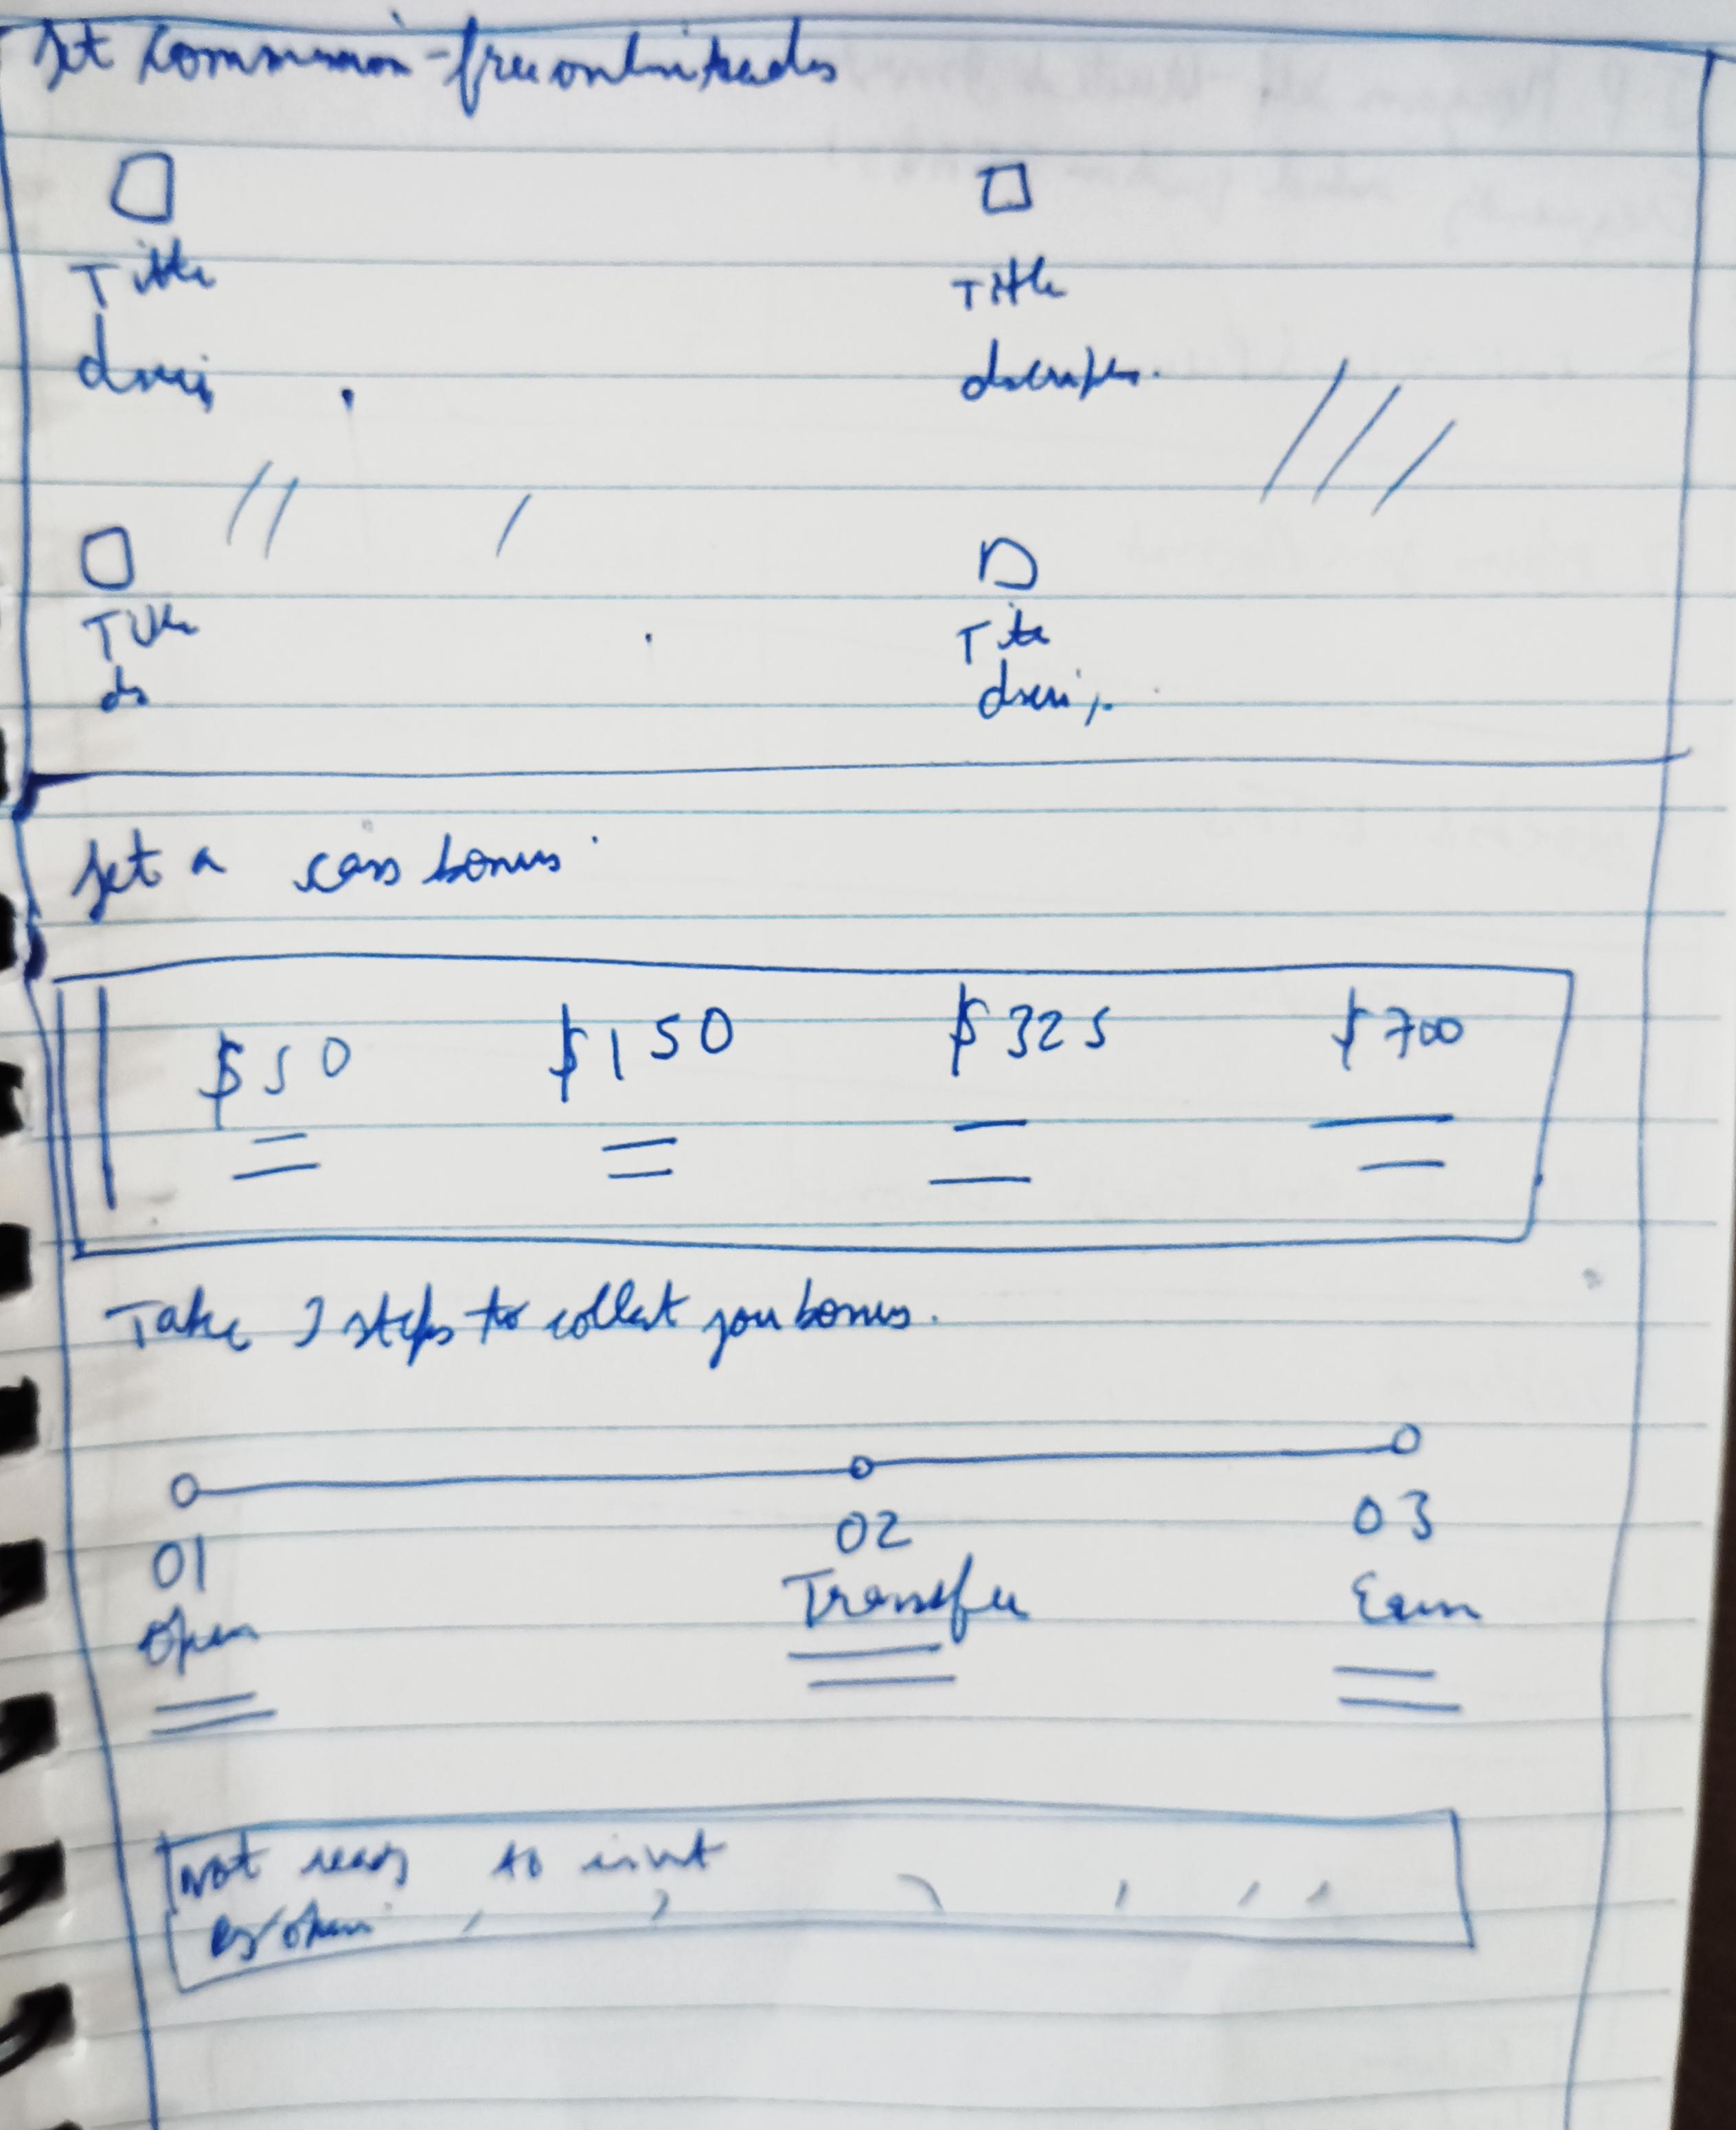 Get commission-free online trades
Title Title
descrip. description.
Title Title
des descrip.
Get a cass bonus
$50 $150 $325 $700
Take 3 steps to collect you bonus.
01 02 03
Open Transfer Earn
Not ready to
open